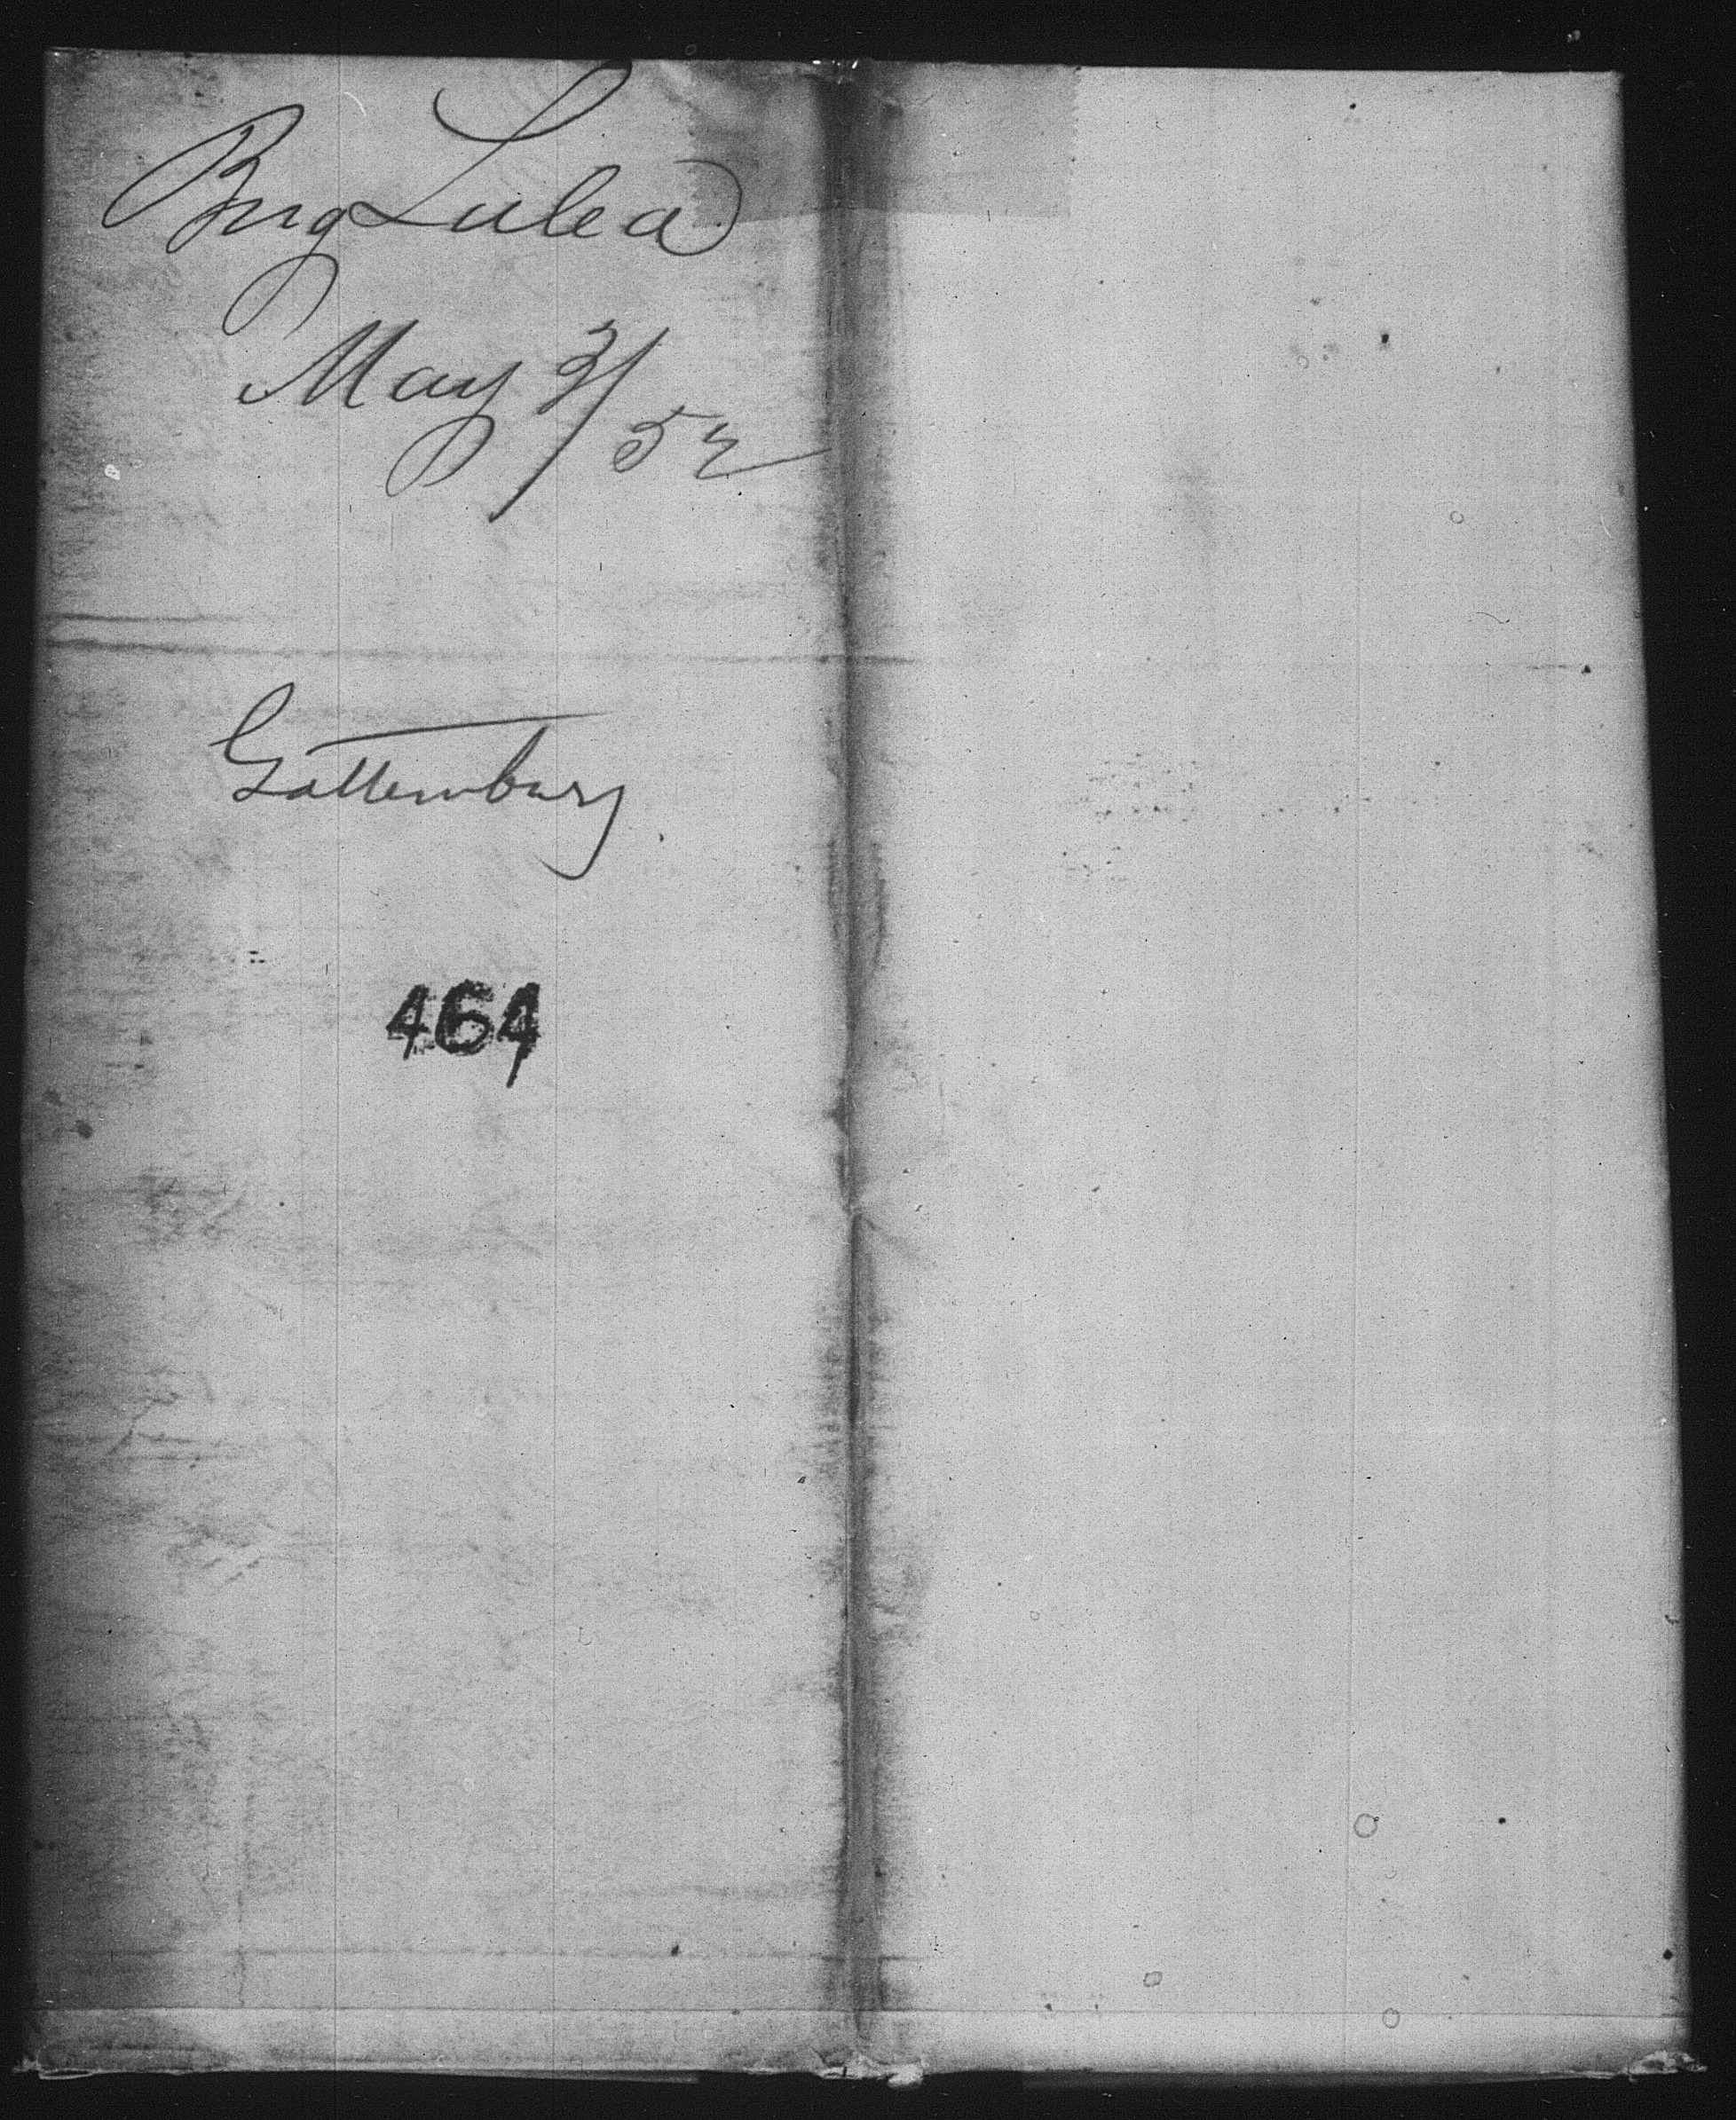 Brig Lulea
May 3/52
Gottenburg
464